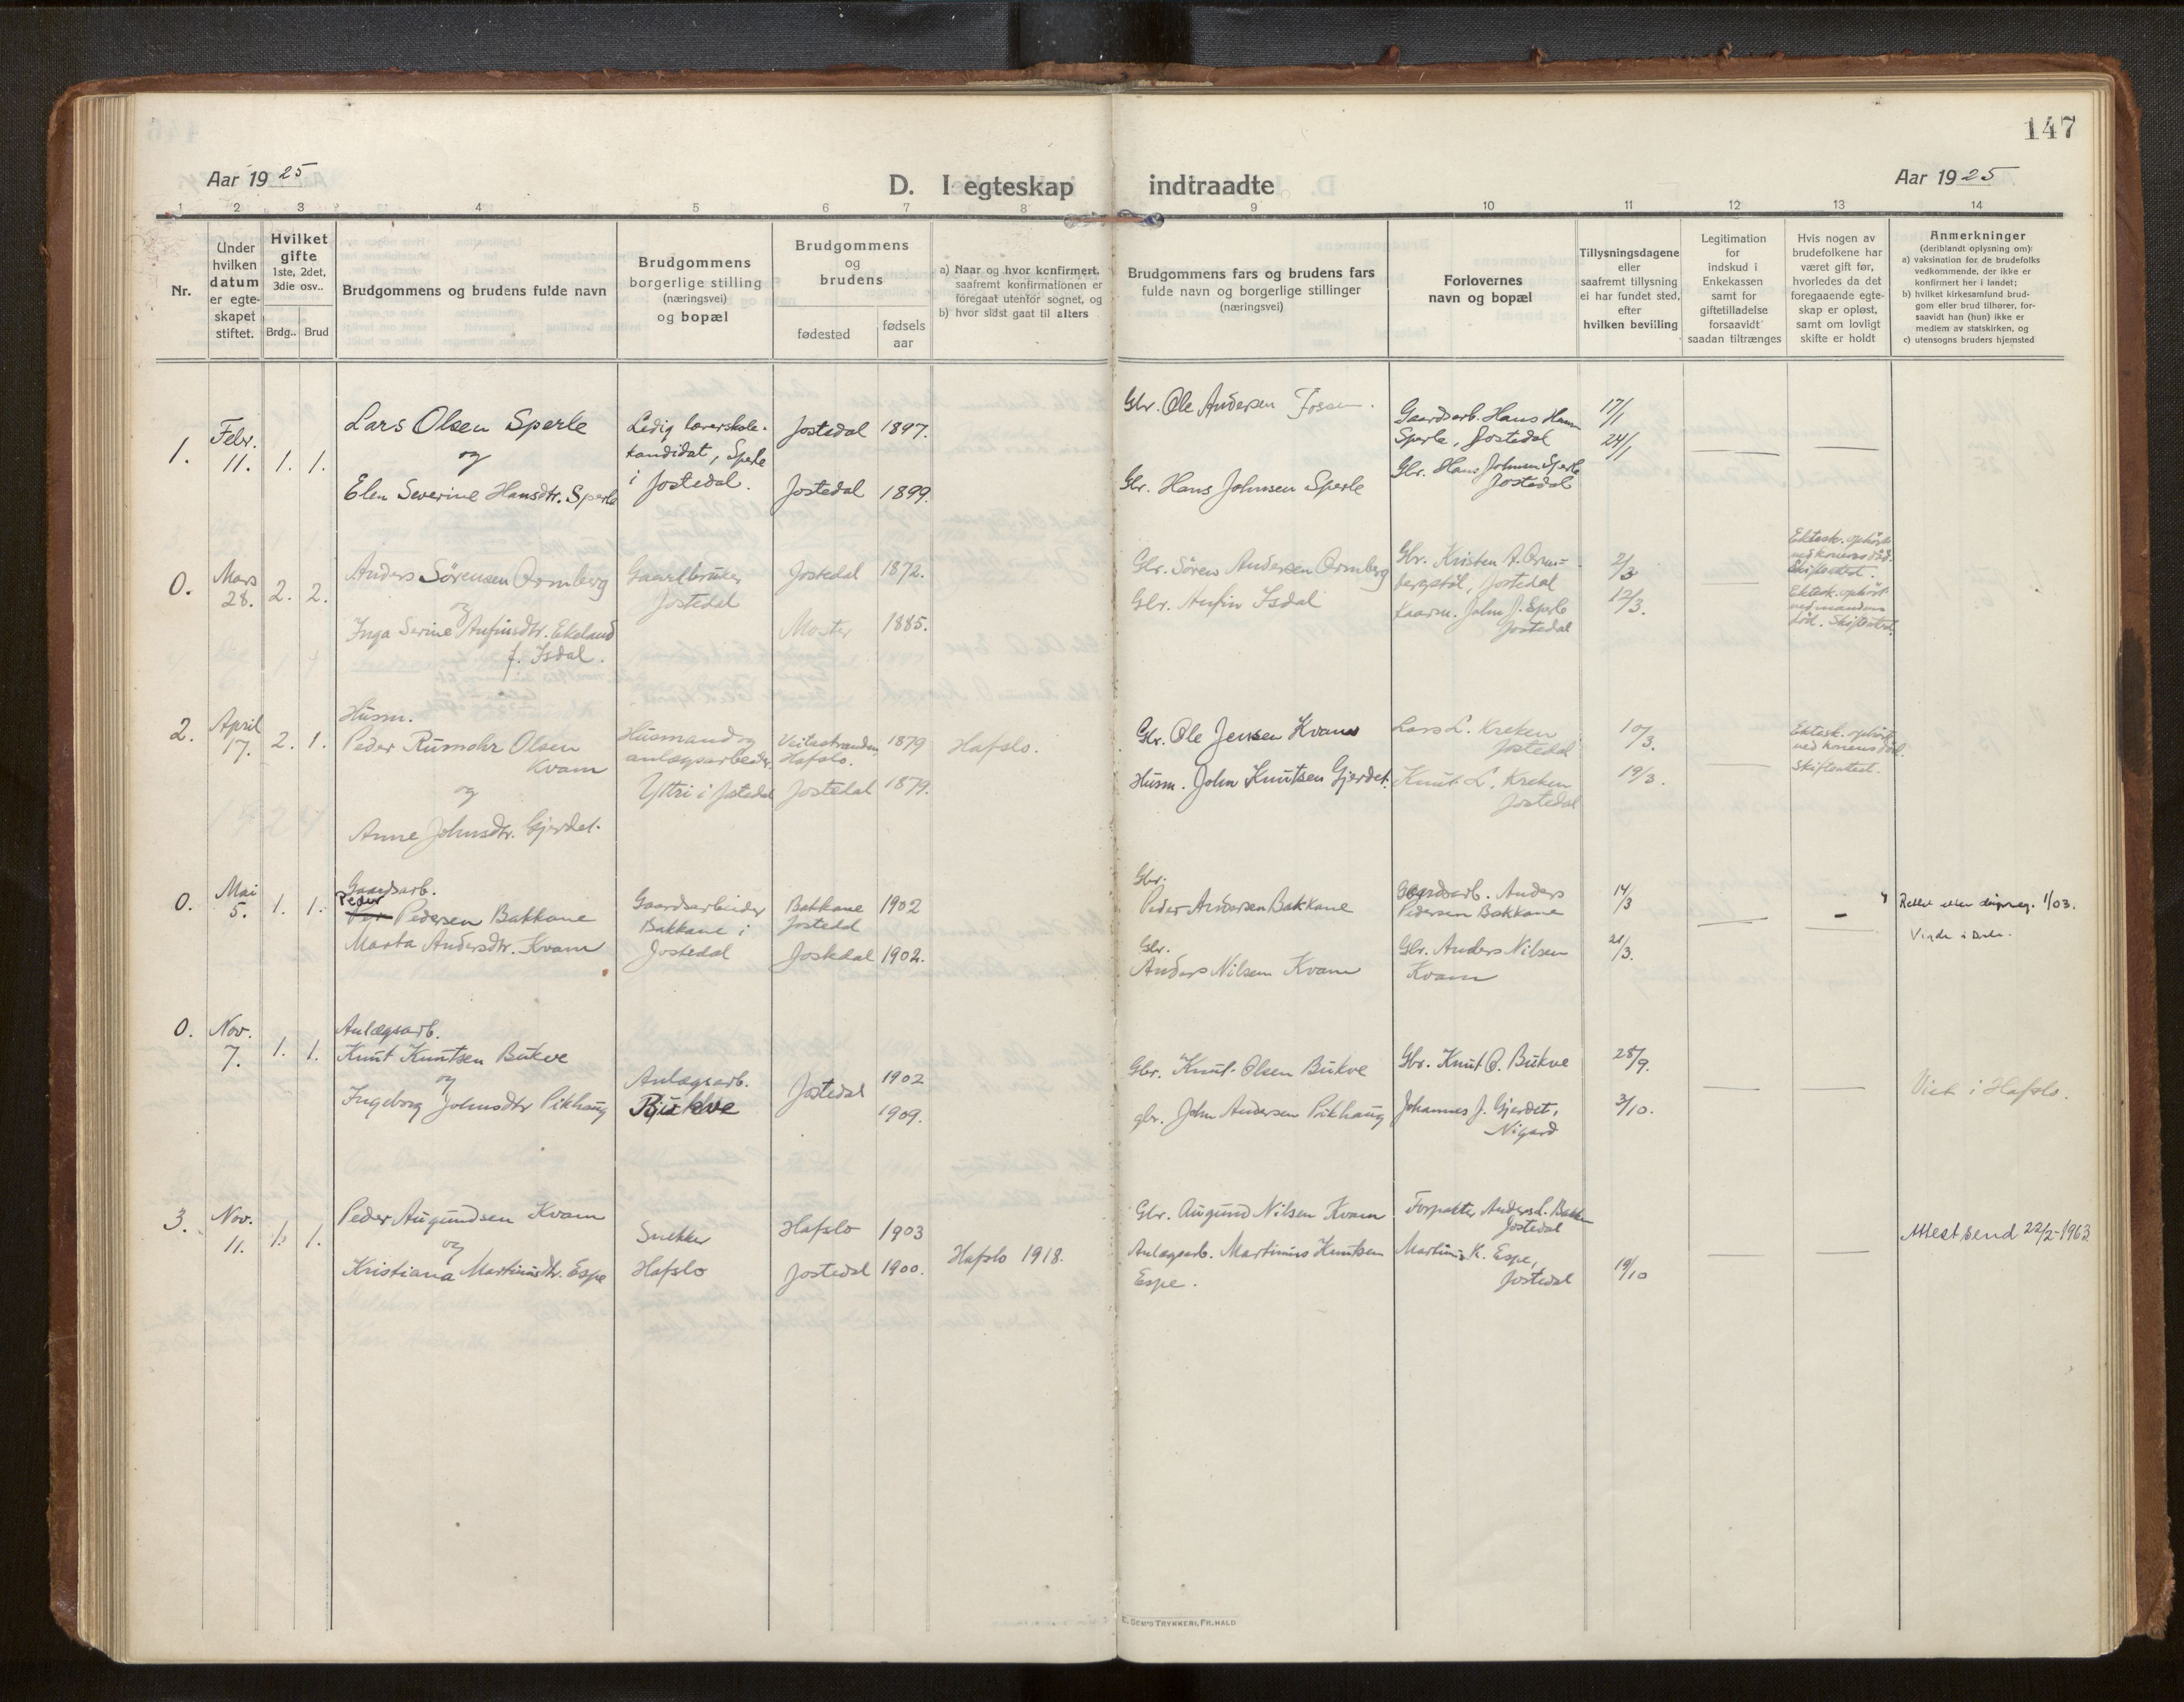 147
Aar 1925
D. I egteskap indtraadte
Aar 1925
1 2 3 4 5 6 7 8 9 10 11 12 13 14
Nr.
Under
hvilken
datum
er egte-
skapet
stiftet.
Hvilket
gifte
1ste, 2det,
3die osv..
Brdg.. Brud
Brudgommens og brudens fulde navn
Brudgommens
borgerlige stilling
(næringsvei)
og bopæl
Brudgommens
og
brudens
fødested
fødsels
aar
a) Naar og hvor konfirmert,
saafremt konfirmationen er
foregaat utenfor sognet, og
b) hvor sidst gaat til alters
Brudgommens fars og brudens fars
fulde navn og borgerlige stillinger
(næringsvei)
Forlovernes
navn og bopæl
Tillysningsdagene
eller
saafremt tillysning
ei har fundet sted,
efter
hvilken bevilling
Legitimation
for
indskud i
Enkekassen
samt for
giftetilladelse
forsaavidt
saadan tiltrænges
Hvis nogen av
brudefolkene har
været gift før,
hvorledes da det
foregaaende egte-
skap er opløst,
samt om lovligt
skifte er holdt
Anmerkninger
(deriblandt oplysning om):
a) vaksination for de brudefolks
vedkommende, der ikke er
konfirmert her i landet;
b) hvilket kirkesamfund brud-
gom eller brud tilhører, for-
saavidt han (hun) ikke er
medlem av statskirken, og
c) utensogns bruders hjemsted
1.
Febr.
11.
1. 1.
Lars Olsen Sperle
og
Elen Severine Hansdtr. Sperle
Ledig lærerskole-
kandidat, Sperle
i Jostedal.
Jostedal 1897.
Jostedal 1899.
Gbr. Ole Andersen Fossen.
Gbr. Hans Johnsen Sperle
Gaardsarb. Hans Hansen
Sperle, Jostedal
Gbr. Hans Johnsen Sperle
Jostedal
17/1
24/1
— —
0.
Mars
28.
2. 2.
Anders Sörensen Ormberg
og
Inga Serine Anfinsdtr. Ekeland
f. Isdal.
Gaardbruker
Jostedal
Jostedal 1872.
Moster 1885.
Gbr. Sören Andersen Ormberg
Gbr. Anfin Isdal
Gbr. Kristen A. Orm-
bergstöl, Jostedal
Kaarm. John J. Sperle
Jostedal
2/3
12/3.
—
Ektesk. ophört
ved konens död.
Skifteattest.
Ektesk. ophört
ved mandens
död. Skifteattest.
2.
April
17.
2. 1.
Husm.
Peder Rumohr Olsen
Kvam
og
Anne Johnsdtr. Gjerdet.
Husmand og
anlægsarbeider.
Yttri i Jostedal
Veitastranden,
Hafslo. 1879
Jostedal 1879.
Hafslo.
Gbr. Ole Jensen Kvam
Husm. John Knutsen Gjerdet.
Lars L. Kreken
Jostedal
Knut L. Kreken
Jostedal
10/3.
19/3.
—
Ektesk. ophört
ved konens död.
Skifteattest.
0.
Mai
5.
1. 1.
Gaardsarb.
Peder
Per Pedersen Bakkane
Marta Andersdtr. Kvam
Gaardsarbeider
Bakkane i
Jostedal
Bakkane
Jostedal 1902
Jostedal 1902.
Gbr.
Peder Andersen Bakkane
Gbr.
Anders Nilsen Kvam
Gaardsarb. Anders
Pedersen Bakkane
Gbr. Anders Nilsen
Kvam
14/3
21/3.
— —
Rettet etter dåpsreg. 1/03.
0.
Nov.
7.
1. 1.
Anlægsarb.
Knut Knutsen Bukve
og
Ingeborg Johnsdtr Pikhaug
Anlægsarb.
Bukve
Jostedal
1902
1909.
Gbr. Knut Olsen Bukve
gbr. John Andersen Pikhaug
Gbr. Knut O. Bukve
Johannes J. Gjerdet,
Nigard
28/9.
3/10.
— —
Viet i Hafslo.
3.
Nov.
11.
1. 1.
Peder Augundsen Kvam
og
Kristiana Martinusdtr. Espe
Snekker
Hafslo
Hafslo 1903
Jostedal 1900.
Hafslo 1918.
Gbr. Augund Nilsen Kvam
Anlægsarb. Martinus Knutsen
Espe.
Forpakter Anders L. Bakken
Jostedal
Martinus K. Espe,
Jostedal
19/10
— —
Attest send 22/2-1963
E. SEM'S TRYKKERI, FR.HALD